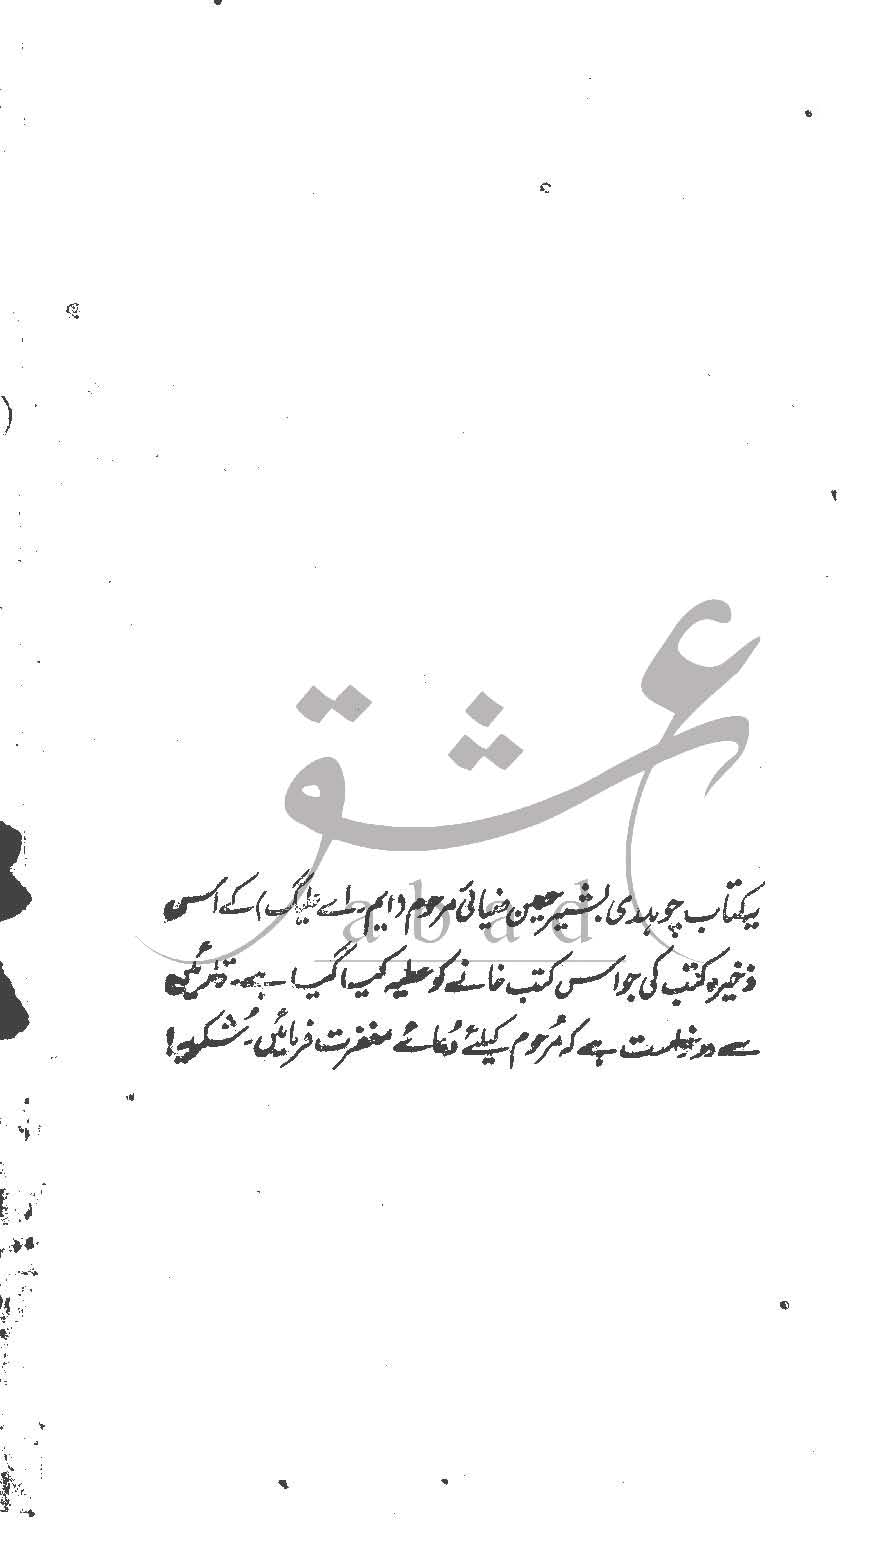 عشق
abad
یہ کتاب چوہدری بشیر حسین ضیائی مرحوم (ایم۔ اے علیگ) کے اس
ذخیرہ کتب کی جو اس کتب خانے کو عطیہ کیا گیا ہے۔ قارئین
سے درخواست ہے کہ مُرحوم کیلئے دُعائے مغفرت فرمائیں۔ شُکریہ!